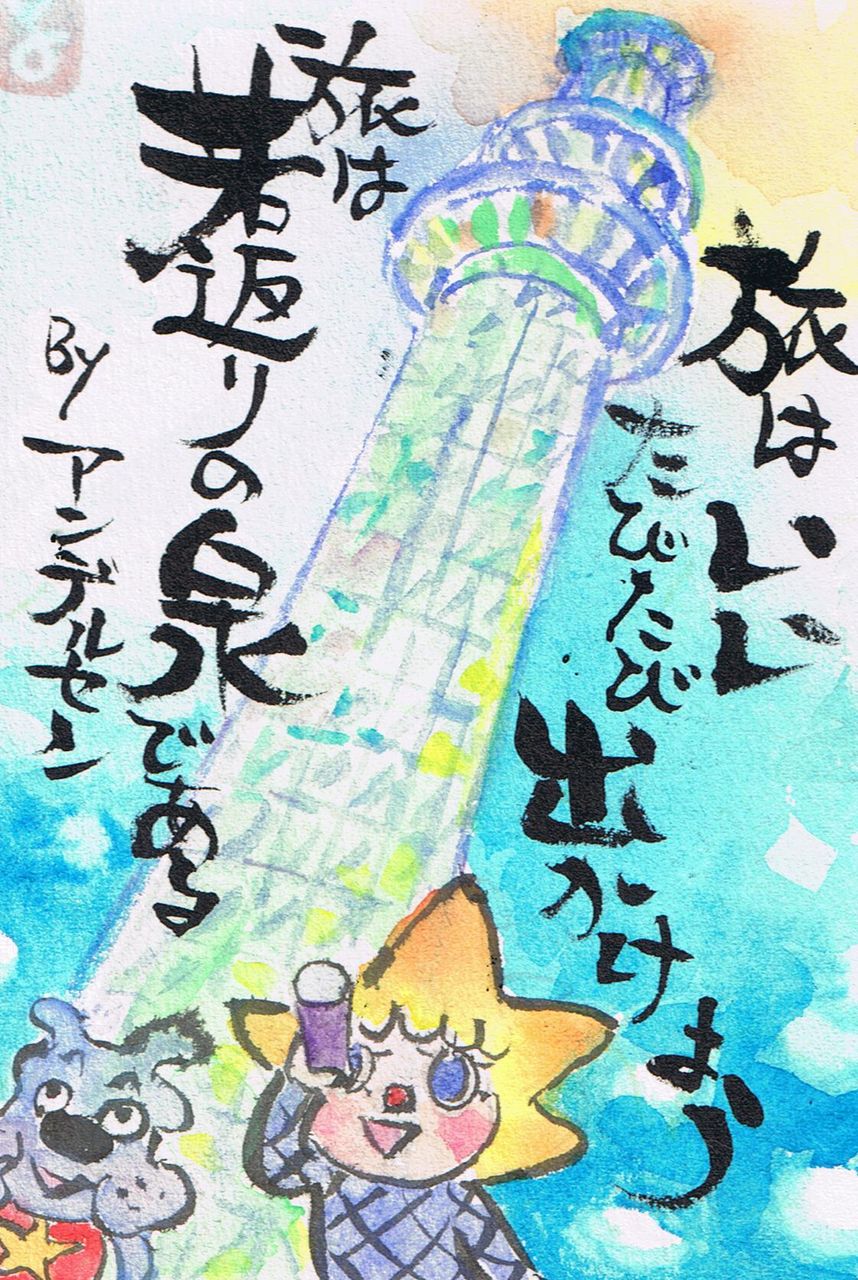 旅はいい
たびたび
出かけよう
旅は
若返りの泉である
By アンデルセン